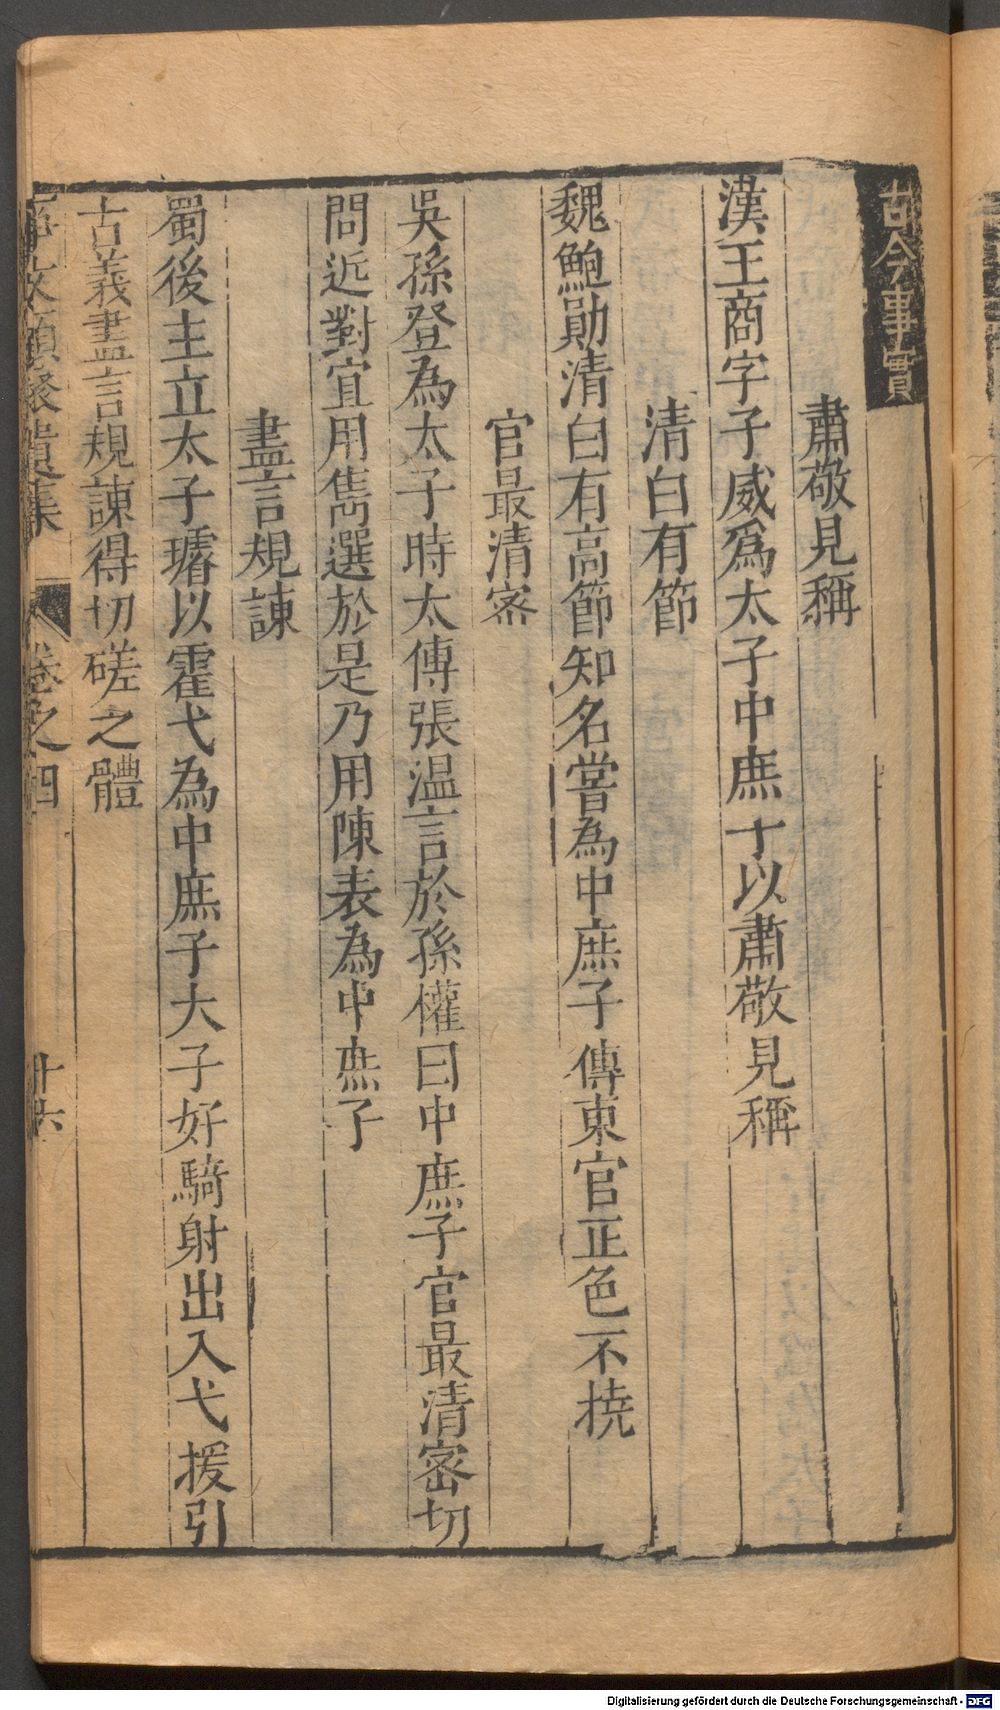 古今事實
肅敬見稱
漢王商字子威爲太子中庶子以肅敬見稱
清白有節
魏鮑勛清白有高節知名嘗為中庶子傳東官正色不撓
官最清密
吳孫登為太子時太傅張温言於孫權曰中庶子官最清密切
問近對宜用雋選於是乃用陳表為中庶子
盡言規諫
蜀後主立太子璿以霍弋為中庶子大子好騎射出入弋援引
古義盡言規諫得切磋之體
事文類聚遺集 卷之四 十六
Digitalisierung gefördert durch die Deutsche Forschungsgemeinschaft - DFG